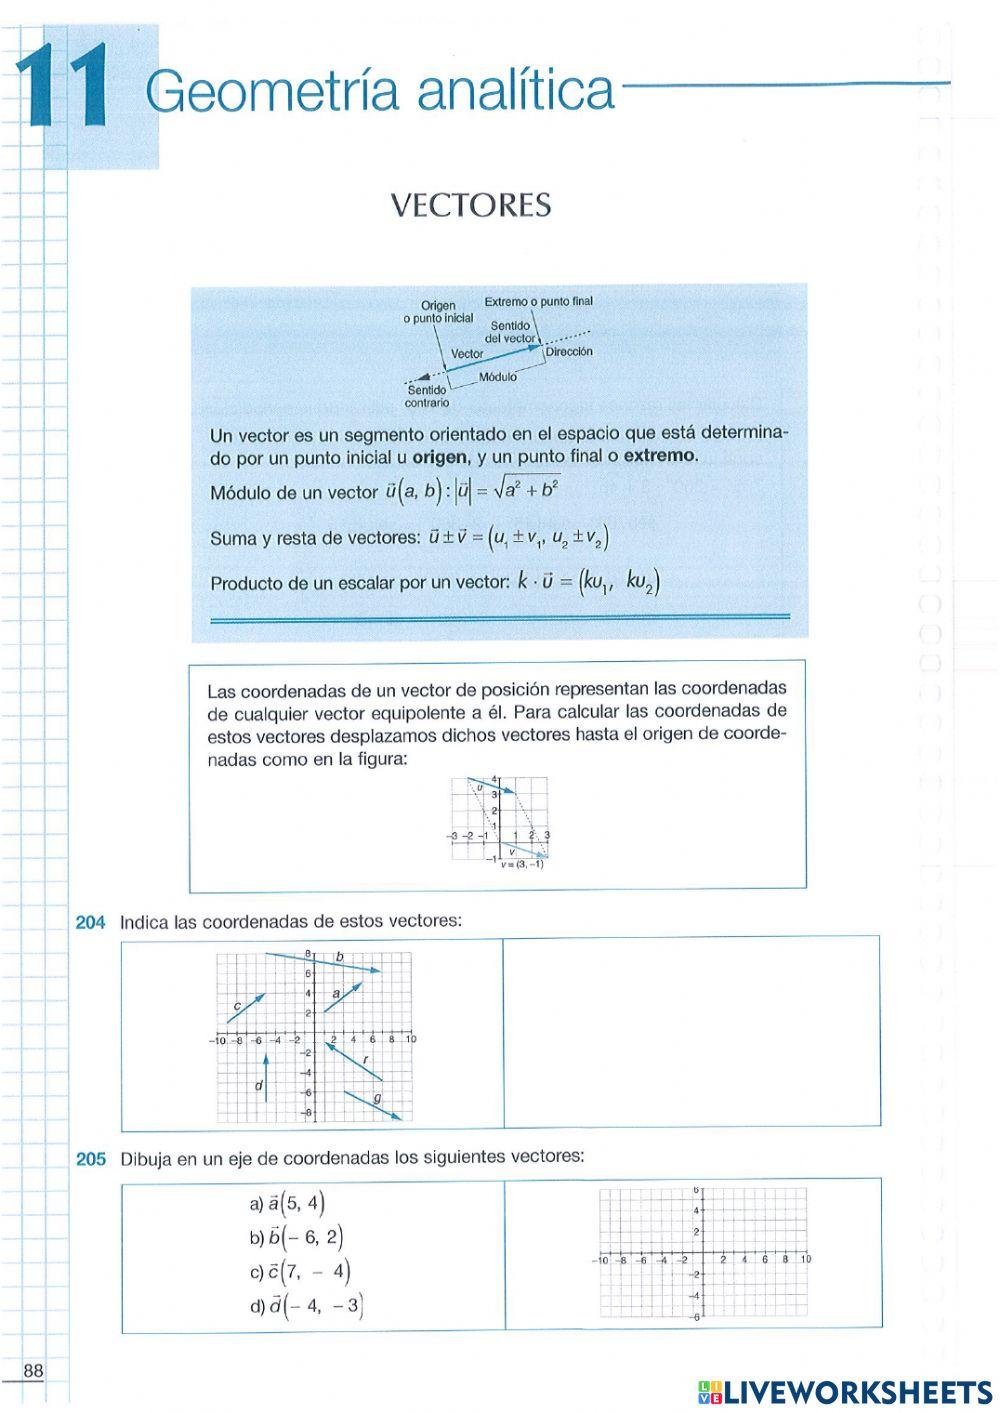 11 Geometría analítica
VECTORES
Origen
o punto inicial
Extremo o punto final
Sentido
del vector
Vector
Dirección
Módulo
Sentido
contrario
Un vector es un segmento orientado en el espacio que está determina-
do por un punto inicial u origen, y un punto final o extremo.
Módulo de un vector u⃗(a, b) : |u⃗| = √(a² + b²)
Suma y resta de vectores: u⃗ ± v⃗ = (u₁ ± v₁, u₂ ± v₂)
Producto de un escalar por un vector: k · u⃗ = (ku₁, ku₂)
Las coordenadas de un vector de posición representan las coordenadas
de cualquier vector equipolente a él. Para calcular las coordenadas de
estos vectores desplazamos dichos vectores hasta el origen de coorde-
nadas como en la figura:
4
u
3
2
1
-3 -2 -1 1 2 3
v
-1
v = (3, -1)
204 Indica las coordenadas de estos vectores:
8 b
6
c 4 a
2
-10 -8 -6 -4 -2 2 4 6 8 10
-2
r
-4
d
-6 g
-8
205 Dibuja en un eje de coordenadas los siguientes vectores:
a) a⃗(5, 4)
b) b⃗(- 6, 2)
c) c⃗(7, - 4)
d) d⃗(- 4, - 3)
6
4
2
-10 -8 -6 -4 -2 2 4 6 8 10
-2
-4
-6
88
LIVE LIVEWORKSHEETS